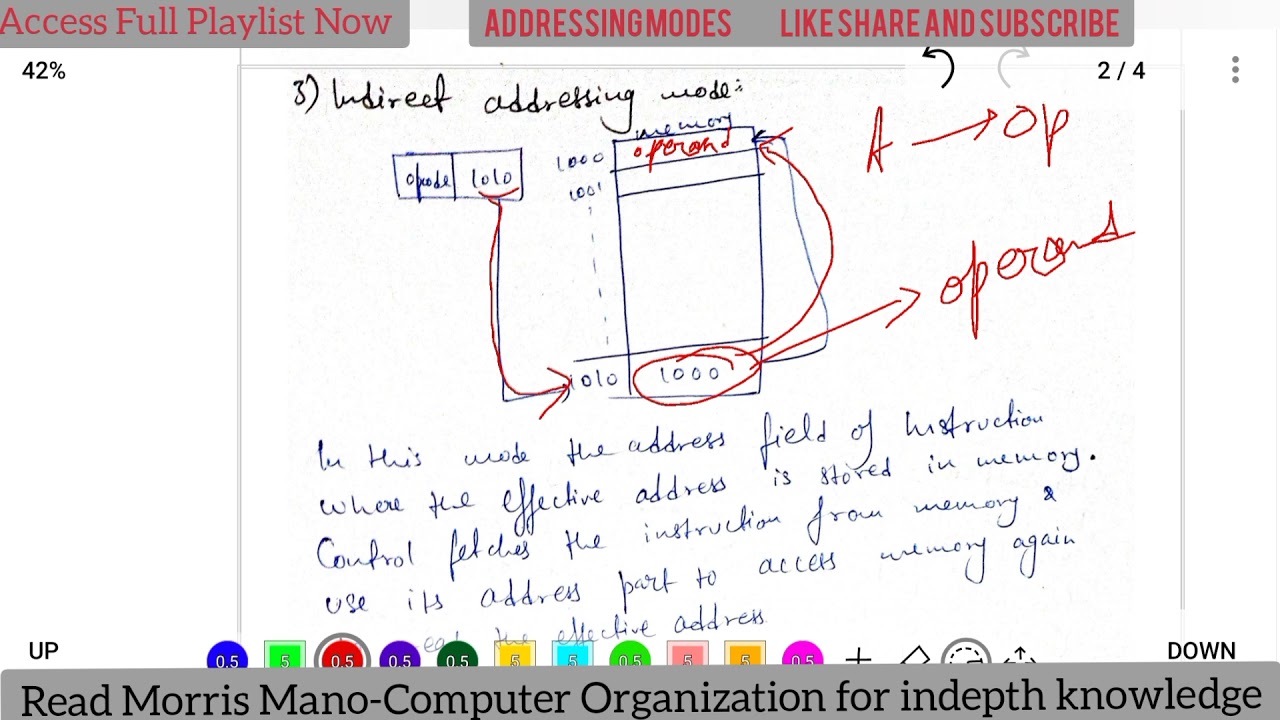 Access Full Playlist Now
ADDRESSING MODES
LIKE SHARE AND SUBSCRIBE
42%
2 / 4
3) Indirect addressing mode:
memory
opcode 1010
1000 operand
1001
A → OP
operand
1010 1000
In this mode the address field of Instruction
where the effective address is stored in memory.
Control fetches the instruction from memory &
use its address part to access memory again
the effective address
UP
0.5 5 0.5 0.5 0.5 5 5 0.5 5 5 0.5
DOWN
Read Morris Mano-Computer Organization for indepth knowledge